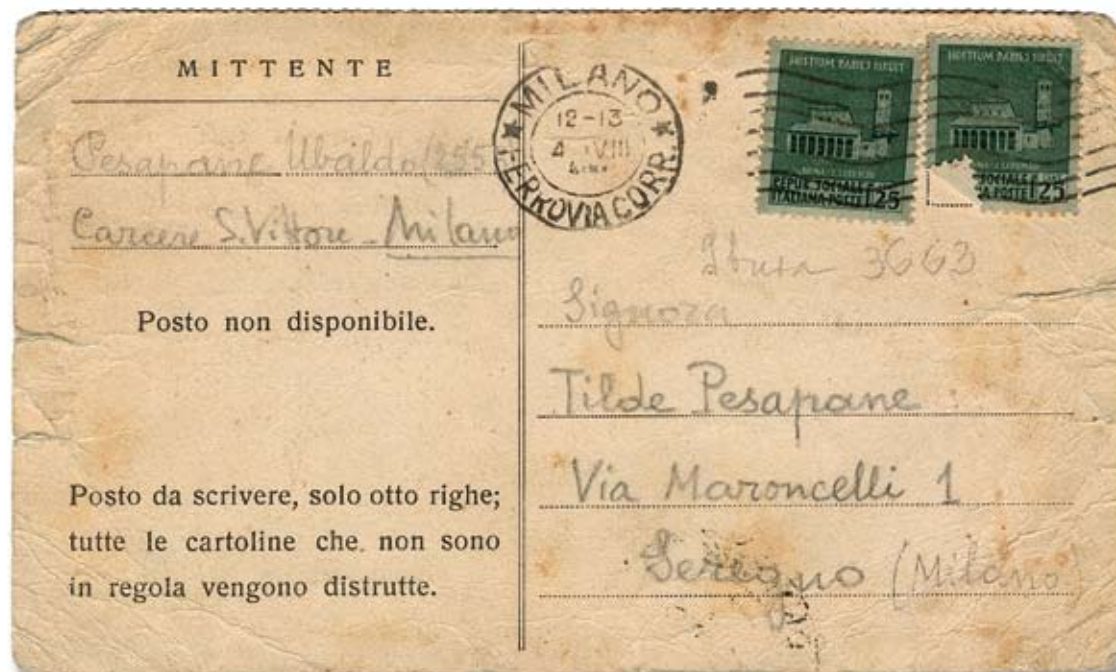 MITTENTE
Pesapane Ubaldo/255
Carcere S. Vittore - Milano
Posto non disponibile.
Posto da scrivere, solo otto righe;
tutte le cartoline che non sono
in regola vengono distrutte.
MILANO
12-13
4 VIII
FERROVIA CORR.
HOSTIUM RABIES DIRUIT
REPUB. SOCIALE
ITALIANA-POSTE 25
HOSTIUM RABIES DIRUIT
SOCIALE
POSTE 25
3663
Signora
Tilde Pesapane
Via Maroncelli 1
Seregno (Milano)